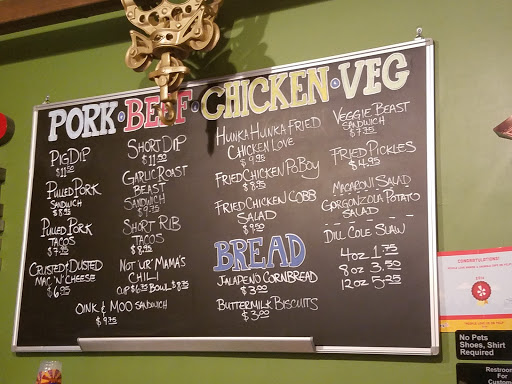 PORK · BEEF · CHICKEN · VEG
PIG DIP
$11.00
PULLED PORK
SANDWICH
$8.95
PULLED PORK
TACOS
$7.50
CRUSTED & DUSTED
MAC 'N' CHEESE
$6.95
OINK & MOO SANDWICH
$9.75
SHORT DIP
$11.50
GARLIC ROAST
BEAST
SANDWICH
$9.75
SHORT RIB
TACOS
$8.95
NOT UR MAMA'S
CHILI
CUP $6.75 BOWL $8.75
HUNKA HUNKA FRIED
CHICKEN LOVE
$9.95
FRIED CHICKEN PO.BOY
$8.95
FRIED CHICKEN COBB
SALAD
$9.50
BREAD
JALAPEÑO CORNBREAD
$3.00
BUTTERMILK BISCUITS
$3.00
VEGGIE BEAST
SANDWICH
$7.75
FRIED PICKLES
$4.95
MACARONI SALAD
GORGONZOLA POTATO
SALAD
DILL COLE SLAW
4oz 1.75
8oz 3.50
12oz 5.25
CONGRATULATIONS!
No Pets
Shoes, Shirt
Required
Restroom
For
Custom